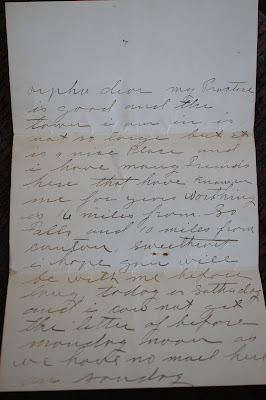 orpha dear my Practice
is good and the
town i am in is
not so large but it
is a nice Place and
i have many Friends
here that have known
me for years Worthing
is 4 miles from So
Falls and 10 miles from
canton, sweetheart
i hope you will
be with me before
long today is Sathuday
and i can not get
the letter of before
monday noon as
we have no mail here
on sonday